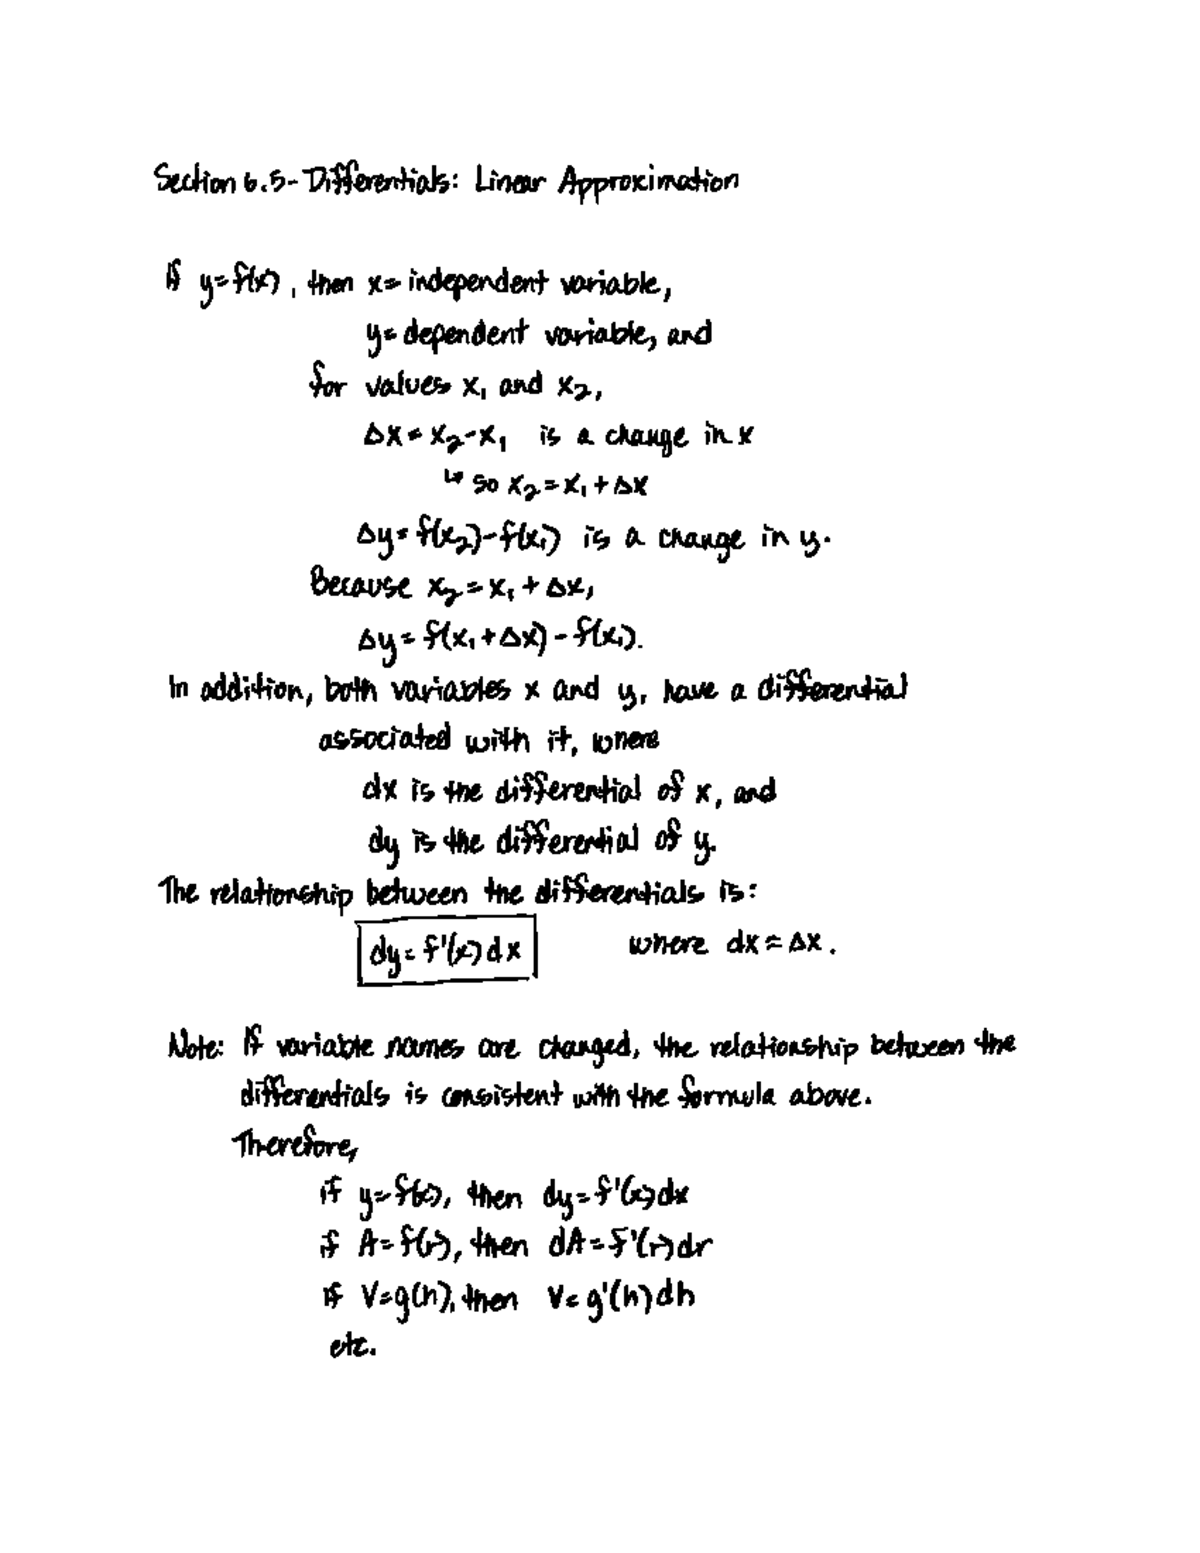 Section 6.5 - Differentials: Linear Approximation
If y=f(x), then x= independent variable,
y= dependent variable, and
for values x₁ and x₂,
Δx = x₂-x₁ is a change in x
↳ so x₂ = x₁ + Δx
Δy = f(x₂)-f(x₁) is a change in y.
Because x₂ = x₁ + Δx,
Δy = f(x₁+Δx) - f(x₁).
In addition, both variables x and y, have a differential
associated with it, where
dx is the differential of x, and
dy is the differential of y.
The relationship between the differentials is:
dy = f'(x)dx where dx = Δx.
Note: If variable names are changed, the relationship between the
differentials is consistent with the formula above.
Therefore,
if y=f(x), then dy=f'(x)dx
if A=f(r), then dA=f'(r)dr
if V=g(h), then V= g'(h)dh
etc.